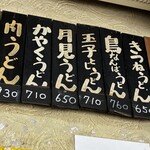 きつねうどん
650
鳥なんばうどん
760
玉子とじうどん
710
月見うどん
650
かやくうどん
710
肉うどん
930